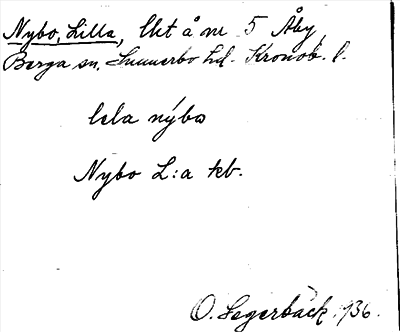 Nybo, Lilla, lht å nr 5 Åby,
Berga sn, Sunnerbo hd. Kronob. l.
lela nýbo
Nybo L:a teb.
O. Segerbäck 1936.